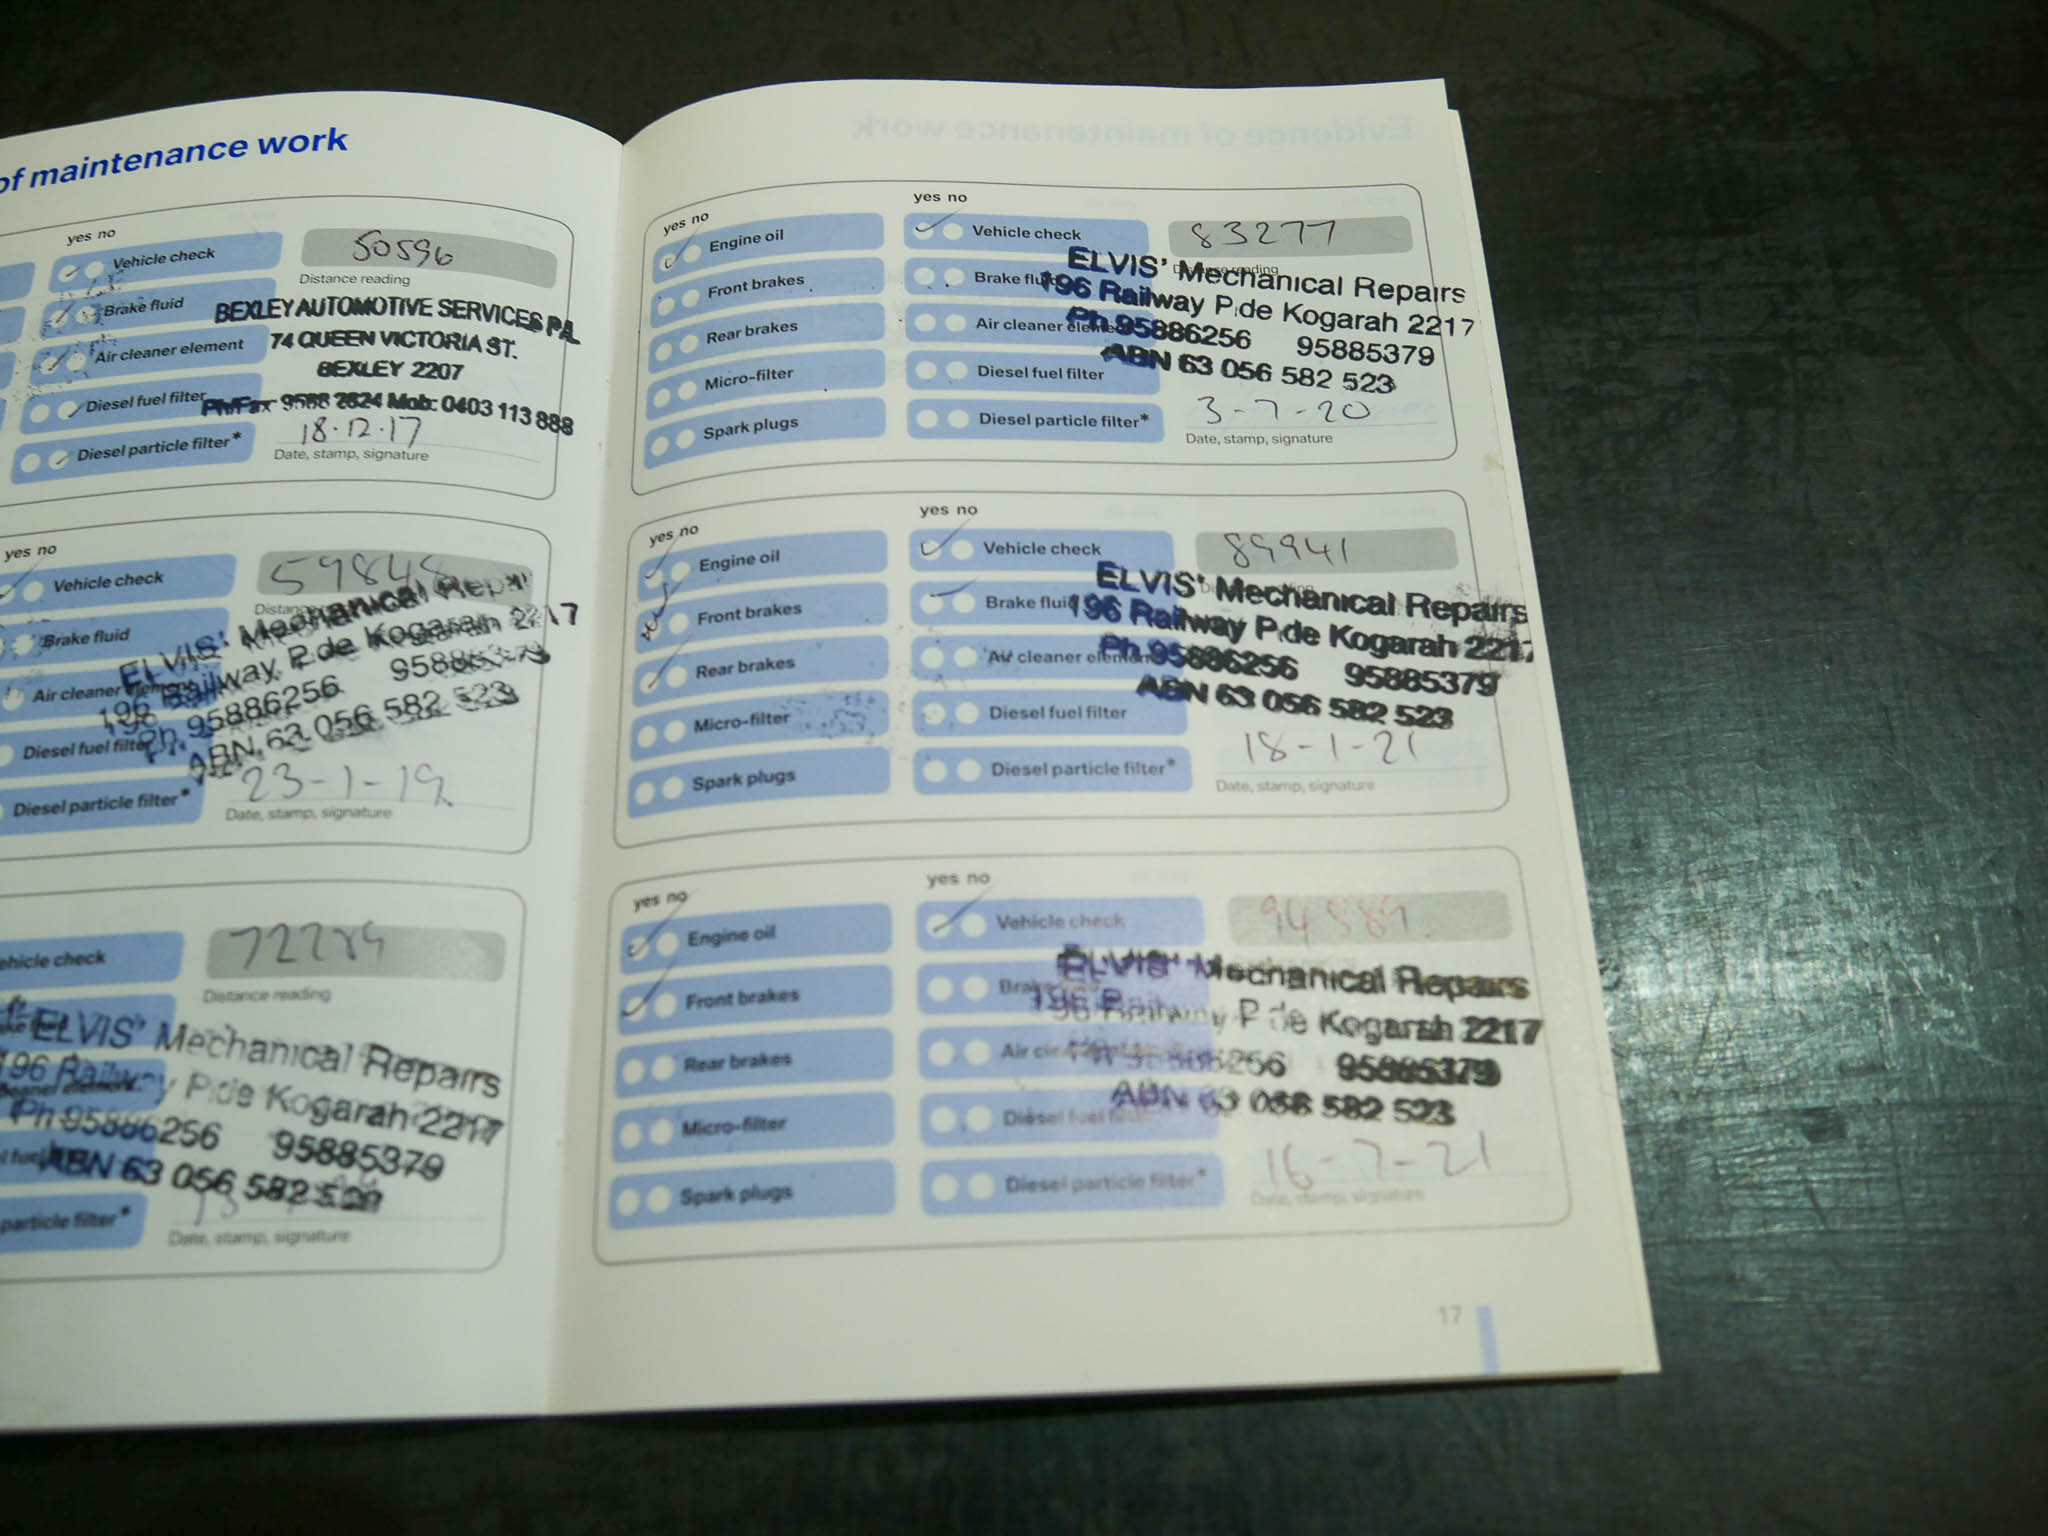 of maintenance work
yes no
Vehicle check
50596
Distance reading
Brake fluid
BEXLEY AUTOMOTIVE SERVICES P/L
74 QUEEN VICTORIA ST.
BEXLEY 2207
Air cleaner element
Diesel fuel filter
Ph/Fax 9588 2624 Mob: 0403 113 888
Diesel particle filter*
18.12.17
Date, stamp, signature
yes no
Vehicle check
Brake fluid
ELVIS' Mechanical
196 Railway P.de Kogarah 2217
Air cleaner
Ph 95886256 95885379
Diesel fuel filter
ABN 63 056 582 523
Diesel particle filter*
23-1-19
Date, stamp, signature
check
72289
Distance reading
ELVIS' Mechanical Repairs
196 Railway P.de Kogarah 2217
Ph 95886256 95885379
ABN 63 056 582
particle filter*
Date, stamp, signature
yes no
Engine oil
Front brakes
Rear brakes
Micro-filter
Spark plugs
yes no
Vehicle check
Brake
Air cleaner
Diesel fuel filter
Diesel particle filter*
83277
reading
ELVIS' Mechanical Repairs
196 Railway P.de Kogarah 2217
Ph 95886256 95885379
ABN 63 056 582 523
3-7-20
Date, stamp, signature
yes no
Engine oil
Front brakes
Rear brakes
Micro-filter
Spark plugs
yes no
Vehicle check
Brake
Air cleaner
Diesel fuel filter
Diesel particle filter*
89941
ELVIS' Mechanical Repairs
196 Railway P.de Kogarah 2217
Ph 95886256 95885379
ABN 63 056 582 523
18-1-21
Date, stamp, signature
yes no
Engine oil
Front brakes
Rear brakes
Micro-filter
Spark plugs
yes no
Vehicle check
Brake
Air
Diesel fuel
Diesel particle filter*
94589
ELVIS' Mechanical Repairs
196 Railway P de Kogarah 2217
95885379
ABN 63 056 582 523
16-7-21
Date, stamp, signature
17